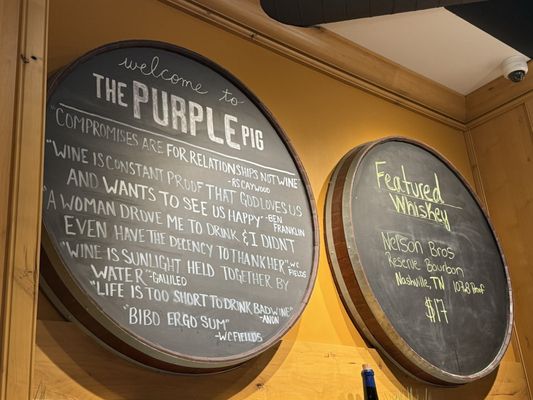 welcome to
THE PURPLE PIG
"COMPROMISES ARE FOR RELATIONSHIPS NOT WINE"
-RS CAYWOOD
"WINE IS CONSTANT PROOF THAT GOD LOVES US
AND WANTS TO SEE US HAPPY" -BEN
FRANKLIN
"A WOMAN DROVE ME TO DRINK & I DIDN'T
EVEN HAVE THE DECENCY TO THANK HER" -W.C
FIELDS
"WINE IS SUNLIGHT HELD TOGETHER BY
WATER" -GALILEO
"LIFE IS TOO SHORT TO DRINK BAD WINE"
-ANON
"BIBO ERGO SUM"
-WC FIELDS
Featured
Whiskey
Nelson Bros
Reserve Bourbon
Nashville, TN 107.8 Proof
$17